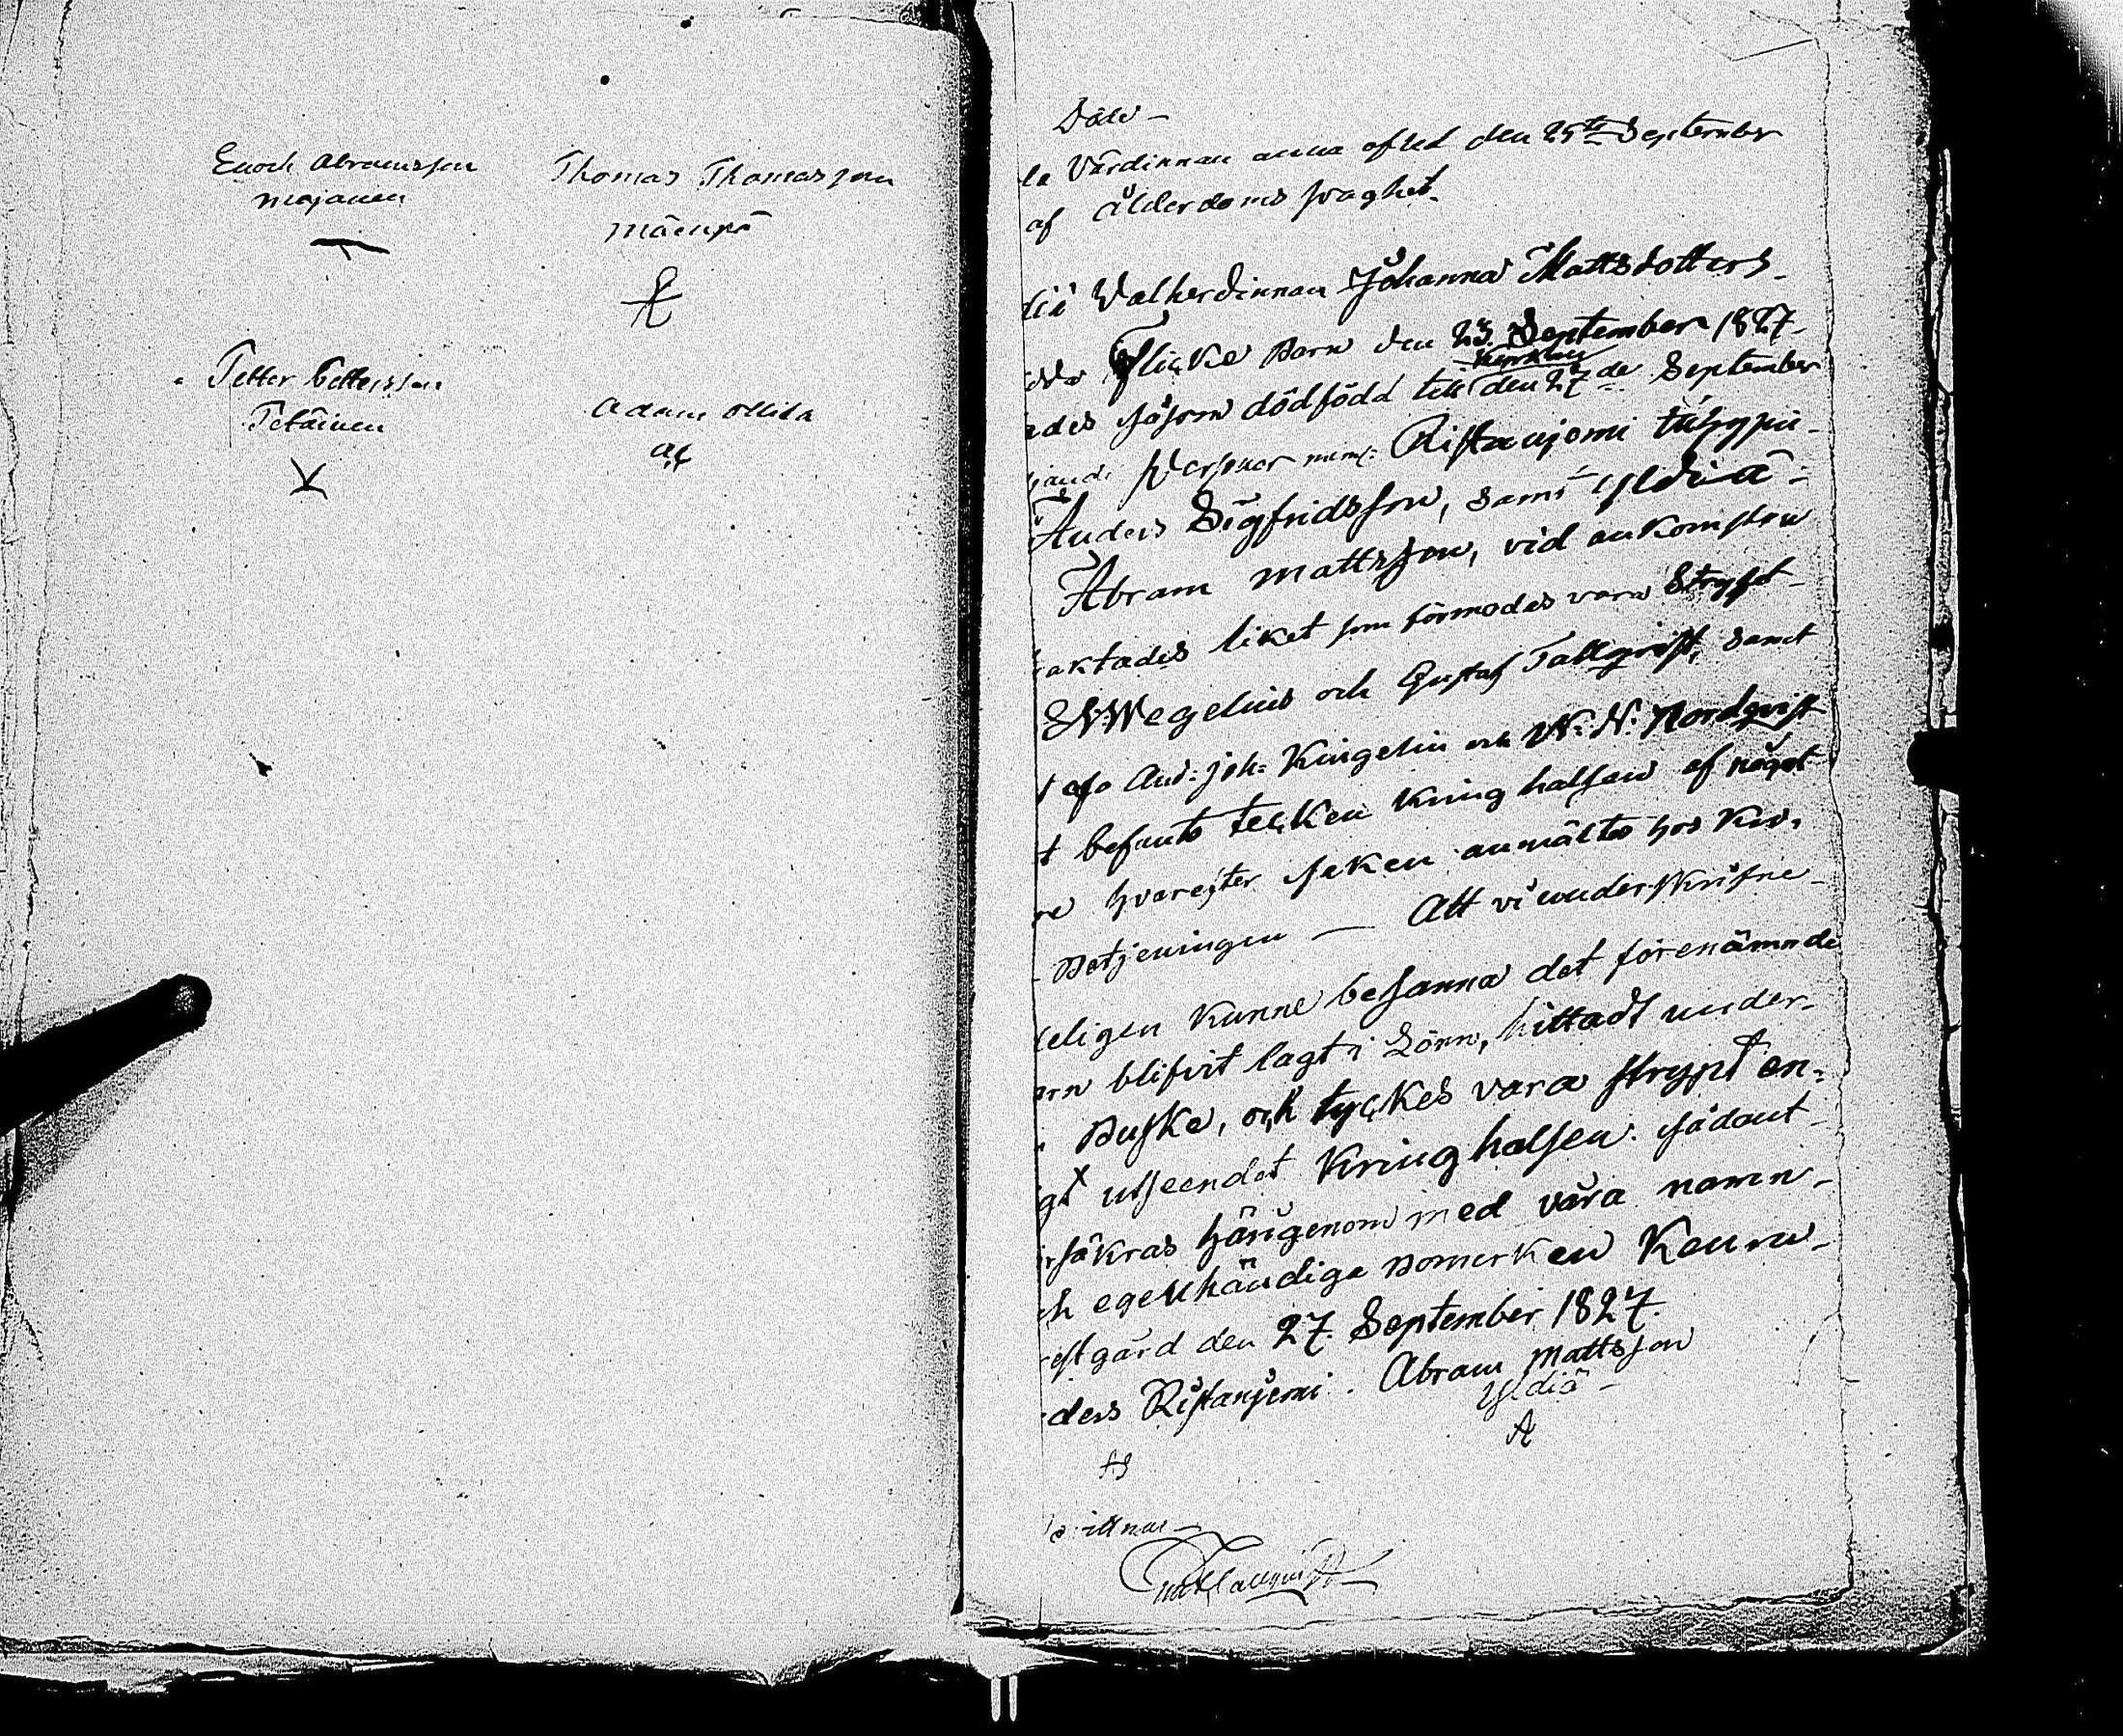 Enoch Abramsson
Majanen
Thomas Thomasson
Mäenpä
Petter Pettersson
Petäinen
Adam Ollila
Död
la Värdinnan Anna afled den 25te September
af ålderdoms swaghet.
Johanna Mattsdotters
Flicka Barn den 23. September 1827
ades såsom dödfödd till kyrkan den 27de September
Personer neml: Ristanjemi
Anders Sigfridsson, samt Yldiä
Abram Mattsson, vid ankomsten
aktades liket som förmodes vara Strypt
Wegelius och Gustaf Tallqvist, samt
And: Joh: Kingelin och W: N: Nordqvist
t befants tecken kring halsen af något
re hvarefter saken anmältes hos
Betjeningen — Att vi underskrifne
eligen kunne besanna det förenämnde
arn blifvit lagt i Lönn, hittadt under
Buske, och tyckes vara strypt en-
gt utseendet kring halsen. sådant
rsäkras härigenom med våra namn
ch egenhändiga Bomerken Keuru
estgård den 27. September 1827.
ders Ristanjemi. Abram Mattsson
Yldiä
A
vittnar
Tallqvist